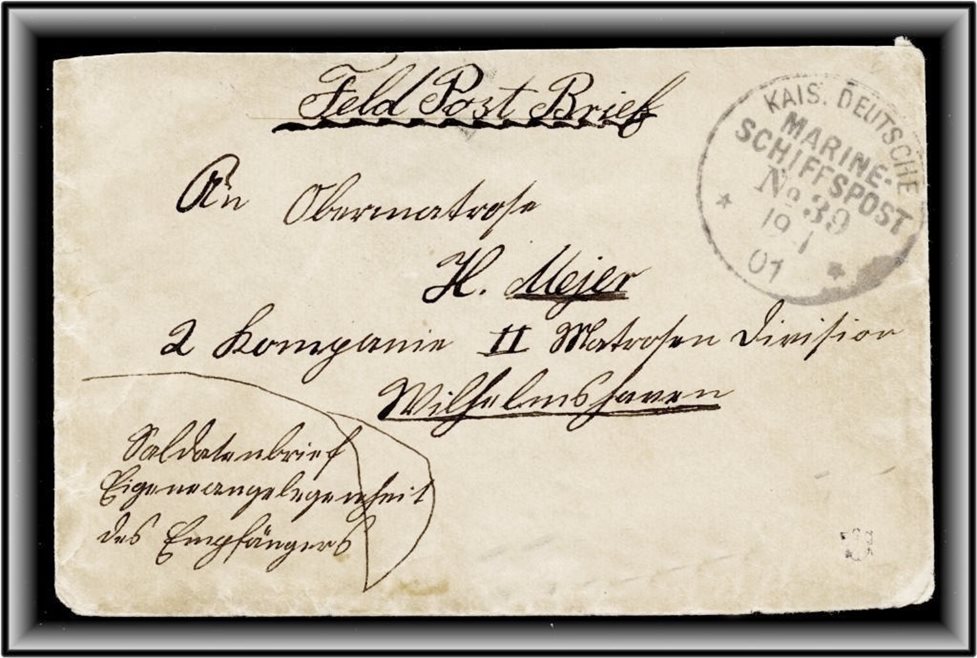 Feld Post Brief
KAIS. DEUTSCHE
MARINE-
SCHIFFSPOST
No 39
19 1
01
An Obermatrose
H. Mejer
2 Kompanie II Matrosen Division
Wilhelmshaven
Soldatenbrief
Eigeneangelegenheit
des Empfängers